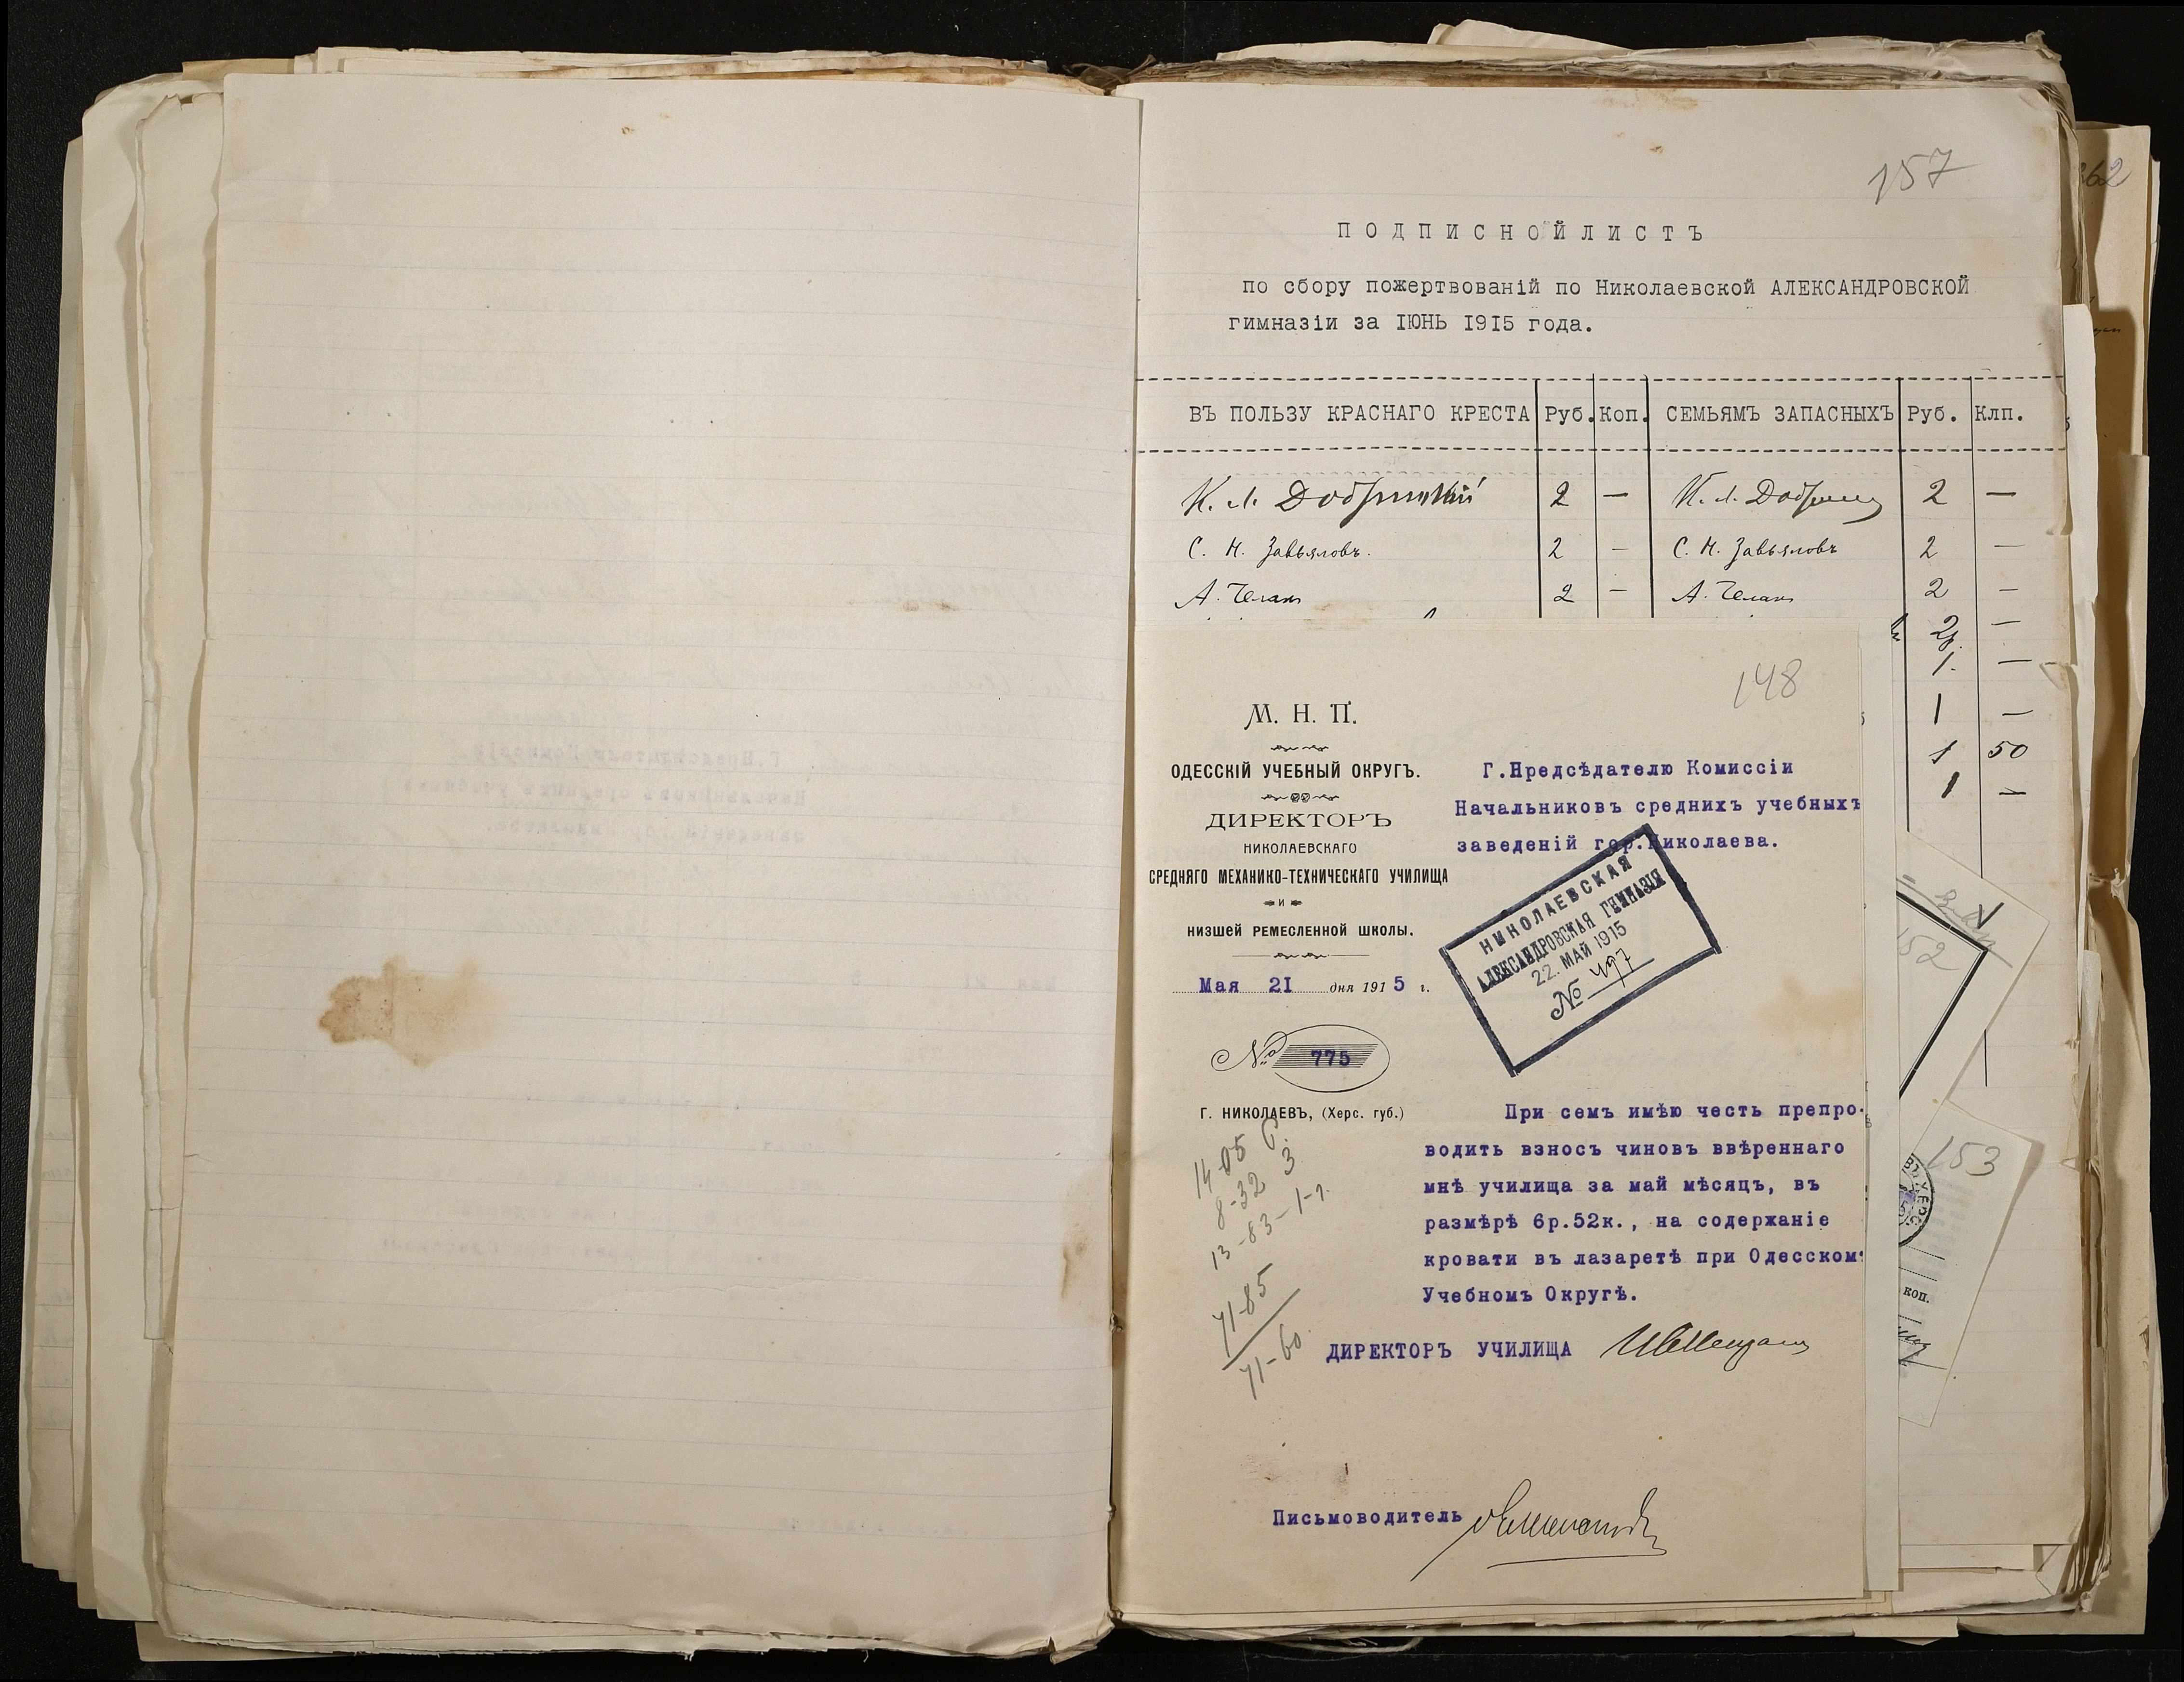 157
ПОДПИСНОЙ ЛИСТЪ
по сбору пожертвованій по Николаевской АЛЕКСАНДРОВСКОЙ
гимназіи за IЮНЬ I9I5 года.
ВЪ ПОЛЬЗУ КРАСНАГО КРЕСТА Руб. Коп. СЕМЬЯМЪ ЗАПАСНЫХЪ Руб. Клп.
К. Л. 2 — К. Л. 2 —
С. Н. Завьяловъ. 2 — С. Н. Завьяловъ 2 —
А. 2 — А. 2 —
2р. —
1. —
1 —
1 50
1 —
62
148
М. Н. П.
ОДЕССКІЙ УЧЕБНЫЙ ОКРУГЪ.
ДИРЕКТОРЪ
НИКОЛАЕВСКАГО
СРЕДНЯГО МЕХАНИКО-ТЕХНИЧЕСКАГО УЧИЛИЩА
И
НИЗШЕЙ РЕМЕСЛЕННОЙ ШКОЛЫ.
Мая 2I дня 1915 г.
№ 775
Г. НИКОЛАЕВЪ, (Херс. губ.)
Г.Предсѣдателю Комиссіи
Начальниковъ среднихъ учебныхъ
заведеній гор.Николаева.
НИКОЛАЕВСКАЯ
АЛЕКСАНДРОВСКАЯ ГИМНАЗІЯ
22. МАЙ 1915
№ 497
При семъ имѣю честь препро-
водить взносъ чиновъ ввѣреннаго
мнѣ училища за май мѣсяцъ, въ
размѣрѣ 6р.52к., на содержаніе
кровати въ лазаретѣ при Одесскомъ
Учебномъ Округѣ.
14-05
8-32 3
13-83-1-
71-85
71-60
ДИРЕКТОРЪ УЧИЛИЩА
Письмоводитель
152
153
коп.